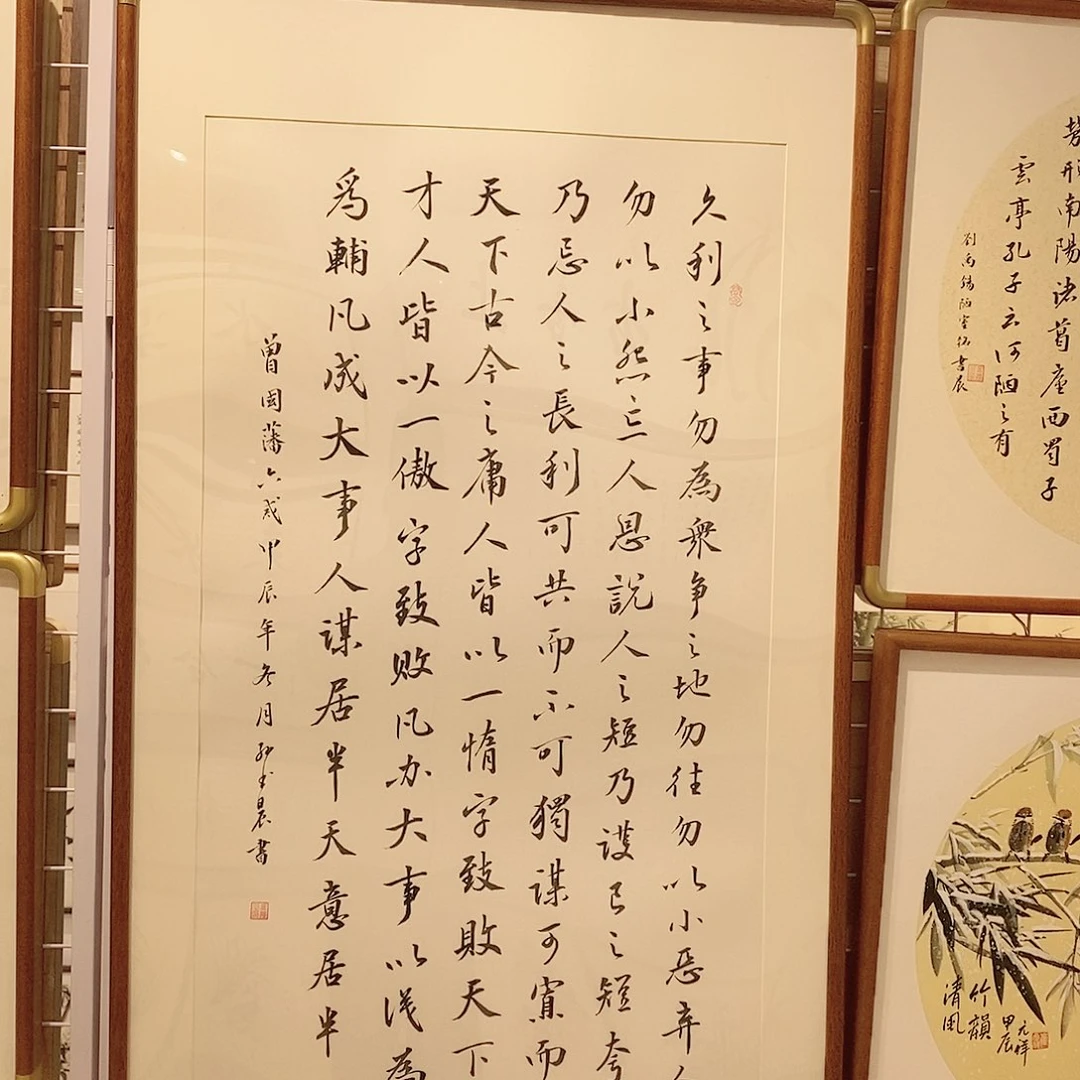 久利之事勿為衆争之地勿往勿以小惡弃人
勿以小怨忘人恩説人之短乃護己之短夸
乃忌人之長利可共而不可獨謀可寡而
天下古今之庸人皆以一惰字致敗天下
才人皆以一傲字致敗凡办大事以识為
爲輔凡成大事人謀居半天意居半
曾國藩六戒甲辰年冬月
晨書
勢形南陽诸葛庐西蜀子
雲亭孔子云何陋之有
劉禹錫陋室铭
書晨
竹韻
清風
甲辰
元祥